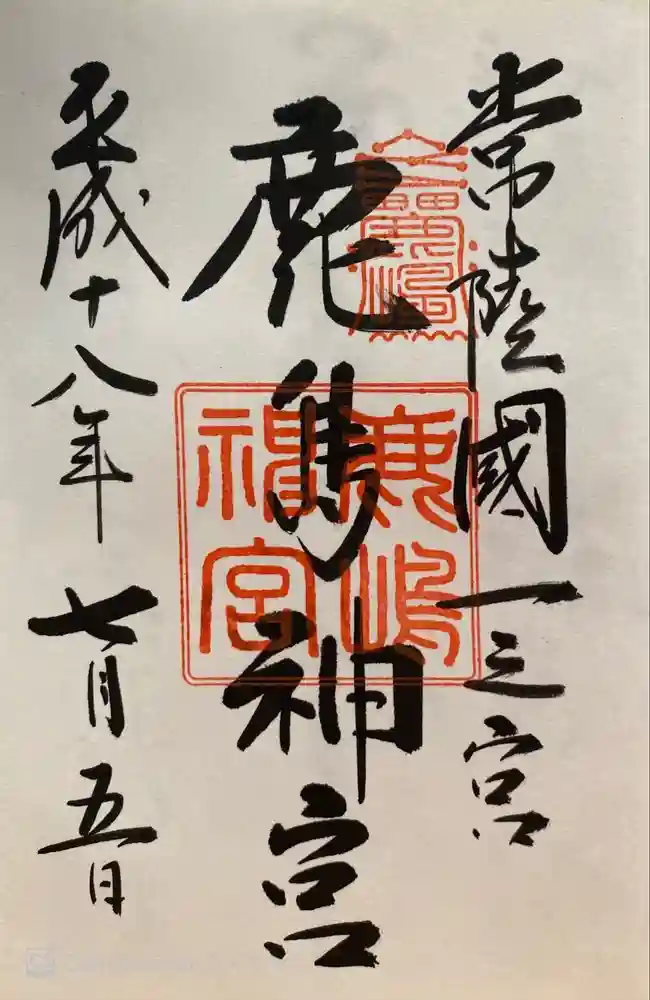 常陸國一之宮
鹿島神宮
平成十八年七月五日
鹿嶋神宮